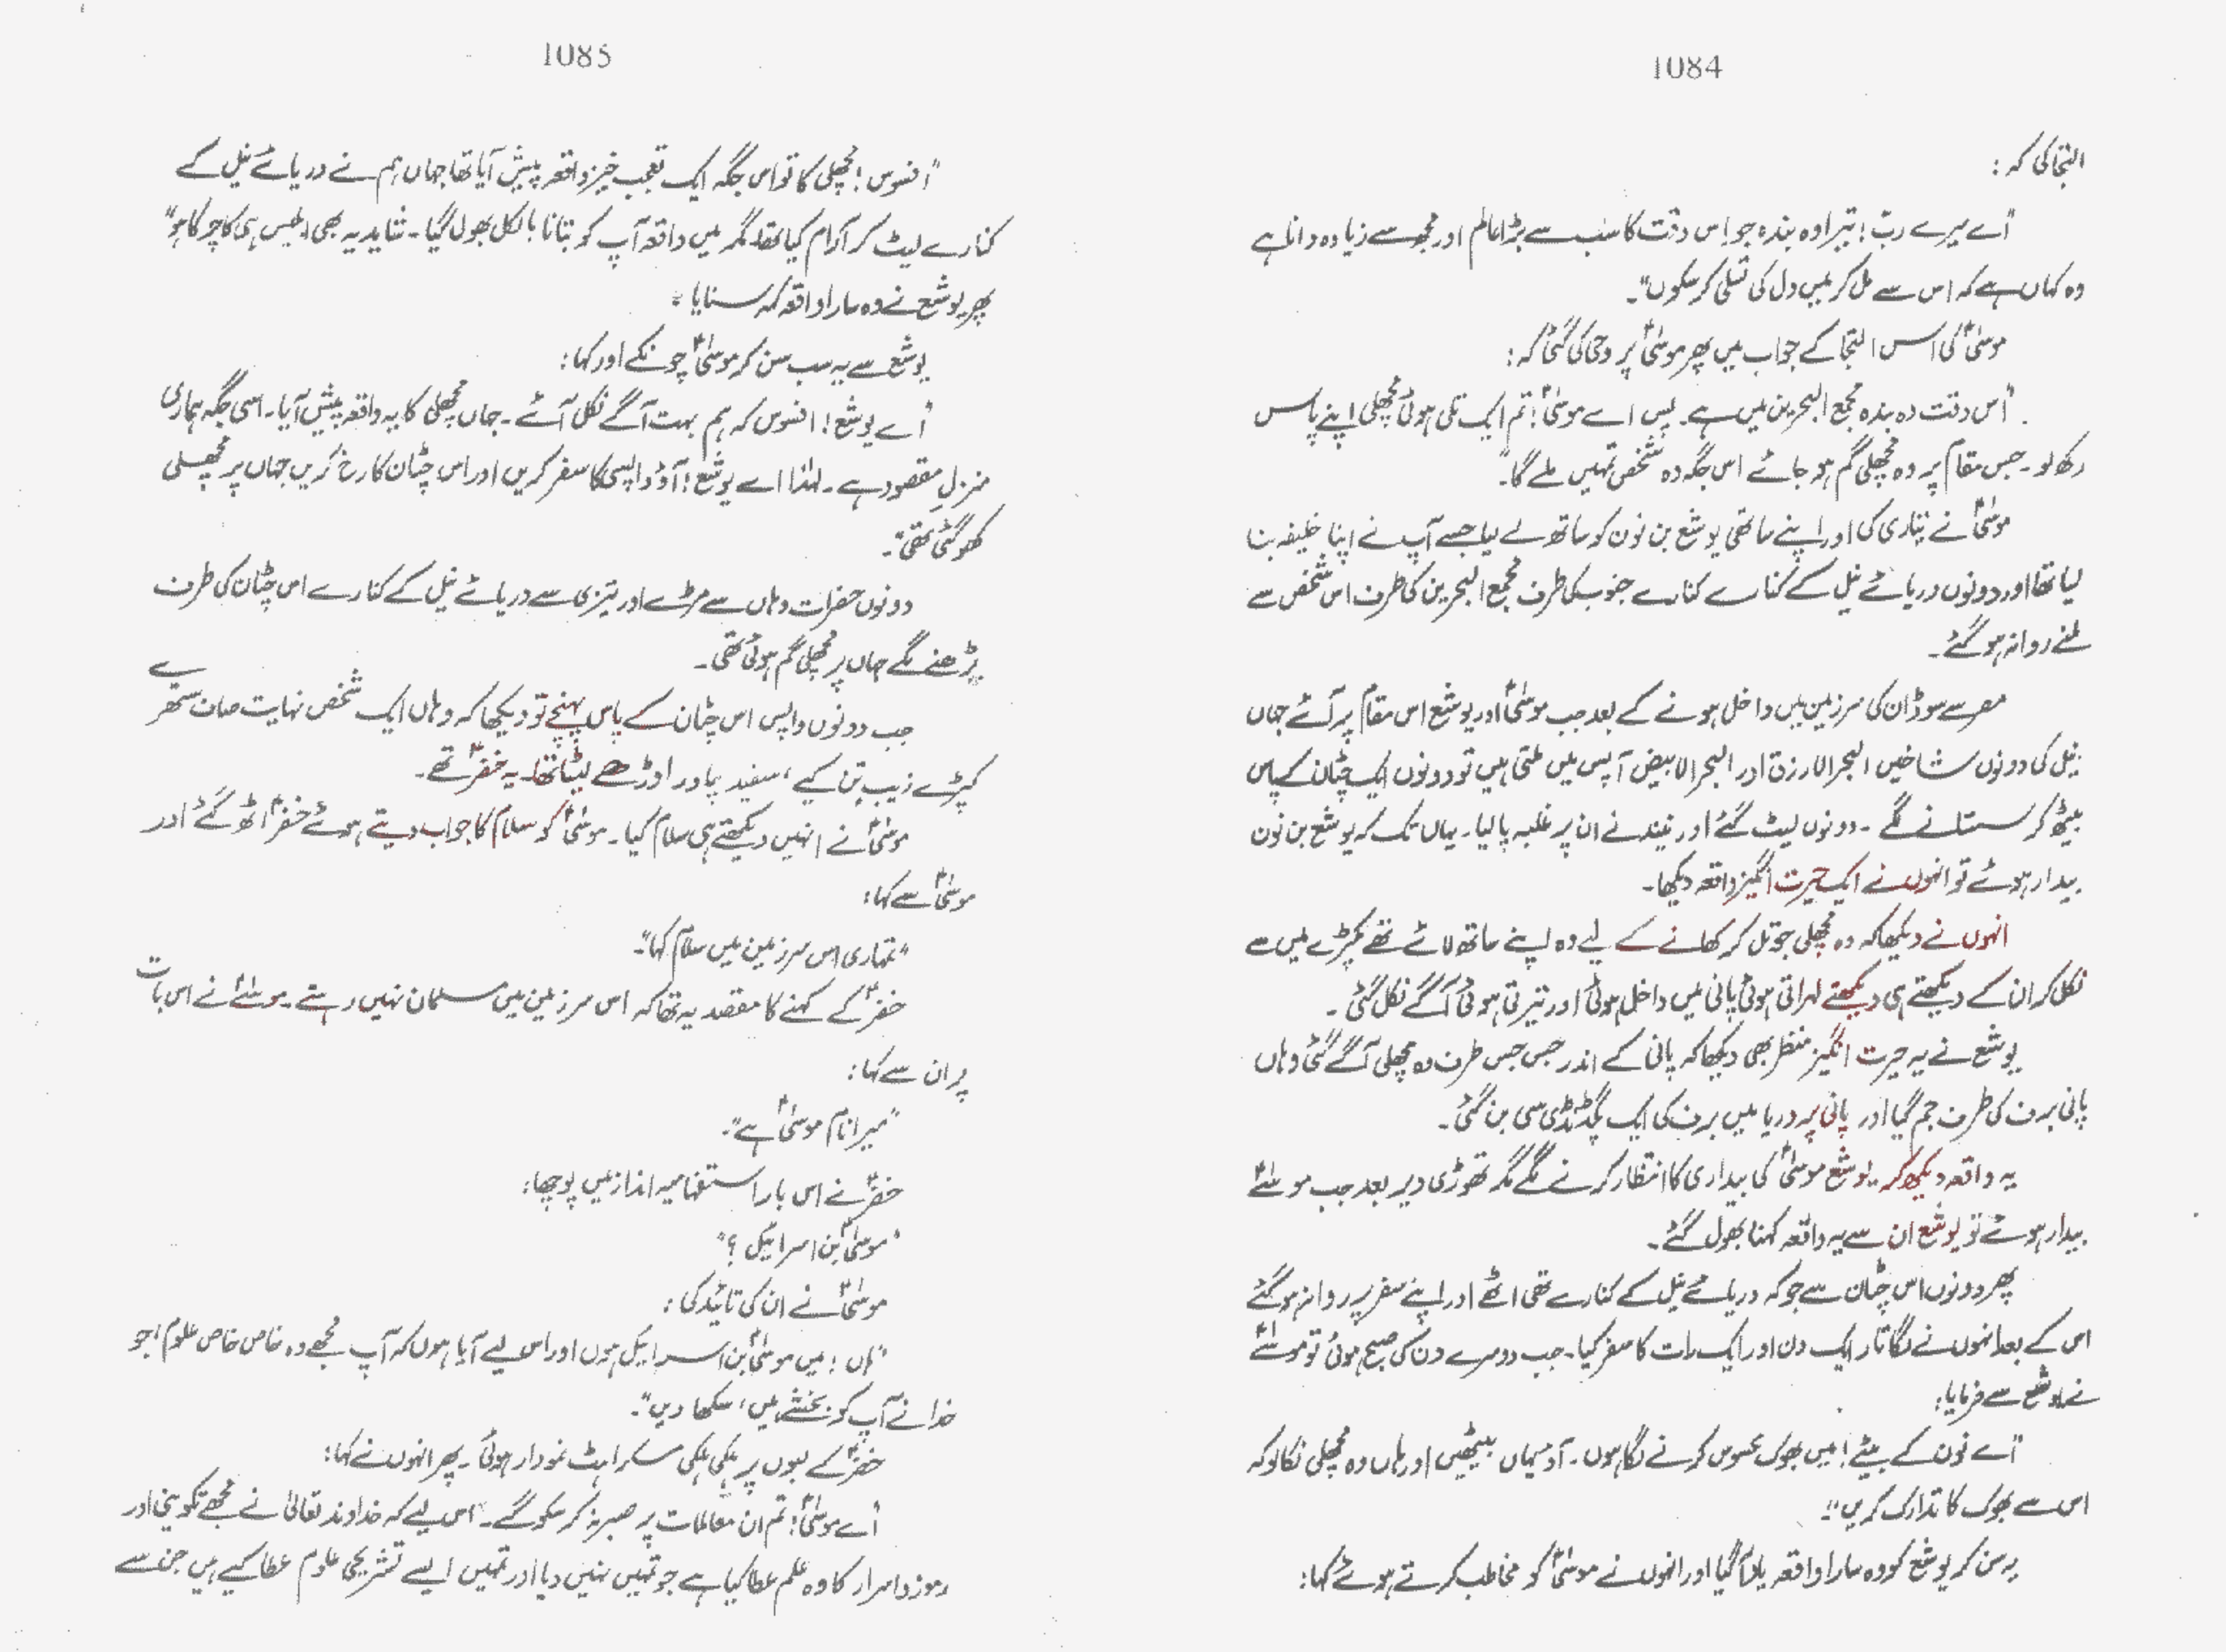 1084
التجا کی کہ :
"اے میرے ربّ ! تیرا وہ بندہ جو اس وقت کا سب سے بڑا عالم اور مجھ سے زیادہ دانا ہے
وہ کہاں ہے کہ اس سے مل کر میں دل کی تسلی کر سکوں"۔
موسیٰؑ کی اس التجا کے جواب میں پھر موسیٰؑ پر وحی کی گئی کہ :
"اس وقت وہ بندہ مجمع البحرین میں ہے۔ پس اے موسیٰؑ ! تم ایک تلی ہوئی مچھلی اپنے پاس
رکھ لو۔ جس مقام پر وہ مچھلی گم ہو جائے اس جگہ وہ شخص تمہیں ملے گا"۔
موسیٰؑ نے تیاری کی اور اپنے ساتھی یوشع بن نون کو ساتھ لے لیا جسے آپ نے اپنا خلیفہ بنا
لیا تھا اور دونوں دریائے نیل کے کنارے کنارے جنوب کی طرف مجمع البحرین کی طرف اس شخص سے
ملنے روانہ ہو گئے۔
مصر سے سوڈان کی سرزمین میں داخل ہونے کے بعد جب موسیٰؑ اور یوشع اس مقام پر آئے جہاں
نیل کی دونوں شاخیں البحر الارزق اور البحر الابیض آپس میں ملتی ہیں تو دونوں ایک چٹان کے پاس
بیٹھ کر سستانے لگے ۔ دونوں لیٹ گئے اور نیند نے ان پر غلبہ پا لیا۔ یہاں تک کہ یوشع بن نون
بیدار ہوئے تو انہوں نے ایک حیرت انگیز واقعہ دیکھا۔
انہوں نے دیکھا کہ وہ مچھلی جو تل کر کھانے کے لیے وہ اپنے ساتھ لائے تھے کپڑے میں سے
نکل کر ان کے دیکھتے ہی دیکھتے لہراتی ہوئی پانی میں داخل ہوئی اور تیرتی ہوئی آگے نکل گئی ۔
یوشع نے یہ حیرت انگیز منظر بھی دیکھا کہ پانی کے اندر جس جس طرف وہ مچھلی آگے گئی وہاں
پانی برف کی طرف جم گیا اور پانی پر دریا میں برف کی ایک پگڈنڈی سی بن گئی۔
یہ واقعہ دیکھ کر یوشع موسیٰؑ کی بیداری کا انتظار کرنے لگے مگر تھوڑی دیر بعد جب موسیٰؑ
بیدار ہوئے تو یوشع ان سے یہ واقعہ کہنا بھول گئے۔
پھر دونوں اس چٹان سے جو کہ دریائے نیل کے کنارے تھی اٹھے اور اپنے سفر پر روانہ ہو گئے
اس کے بعد انہوں نے لگاتار ایک دن اور ایک رات کا سفر کیا۔ جب دوسرے دن کی صبح ہوئی تو موسیٰؑ
نے یوشع سے فرمایا:
"اے نون کے بیٹے ! میں بھوک محسوس کرنے لگا ہوں۔ آؤ یہاں بیٹھیں اور ہاں وہ مچھلی نکالو کہ
اس سے بھوک کا تدارک کریں"۔
یہ سن کر یوشع کو وہ سارا واقعہ یاد آ گیا اور انہوں نے موسیٰؑ کو مخاطب کرتے ہوئے کہا:
1085
"افسوس ! مچھلی کا تو اس جگہ ایک تعجب خیز واقعہ پیش آیا تھا جہاں ہم نے دریائے نیل کے
کنارے لیٹ کر آرام کیا تھا۔ مگر میں واقعہ آپ کو بتانا بالکل بھول گیا۔ شاید یہ بھی ابلیس ہی کا چرکا ہو"
پھر یوشع نے وہ سارا واقعہ کہہ سنایا ۔
یوشع سے یہ سب سن کر موسیٰؑ چونکے اور کہا:
"اے یوشع ! افسوس کہ ہم بہت آگے نکل آئے ۔ جہاں مچھلی کا یہ واقعہ پیش آیا۔ اسی جگہ ہماری
منزلِ مقصود ہے ۔ لہٰذا اے یوشع ! آؤ واپسی کا سفر کریں اور اس چٹان کا رخ کریں جہاں پر مچھلی
کھو گئی تھی"۔
دونوں حضرات وہاں سے مڑے اور تیزی سے دریائے نیل کے کنارے اس چٹان کی طرف
بڑھنے لگے جہاں پر مچھلی گم ہوئی تھی۔
جب دونوں واپس اس چٹان کے پاس پہنچے تو دیکھا کہ وہاں ایک شخص نہایت صاف ستھرے
کپڑے زیب تن کیے، سفید چادر اوڑھے لیٹا تھا۔ یہ خضرؑ تھے۔
موسیٰؑ نے انہیں دیکھتے ہی سلام کیا۔ موسیٰؑ کو سلام کا جواب دیتے ہوئے خضرؑ اٹھ گئے اور
موسیٰؑ سے کہا:
"تمہاری اس سرزمین میں سلام کہا"۔
خضرؑ کے کہنے کا مقصد یہ تھا کہ اس سرزمین میں مسلمان نہیں رہتے۔ موسیٰؑ نے اس بات
پر ان سے کہا:
"میرا نام موسیٰؑ ہے"۔
خضرؑ نے اس بار استفہامیہ انداز میں پوچھا:
"موسیٰؑ بن اسرائیل ؟"
موسیٰؑ نے ان کی تائید کی :
"ہاں ! میں موسیٰؑ بن اسرائیل ہوں اور اس لیے آیا ہوں کہ آپ مجھے وہ خاص خاص علوم، جو
خدا نے آپ کو بخشے ہیں، سکھا دیں"۔
خضرؑ کے لبوں پر ہلکی ہلکی مسکراہٹ نمودار ہوئی۔ پھر انہوں نے کہا:
"اے موسیٰؑ ! تم ان معاملات پر صبر نہ کر سکو گے۔ اس لیے کہ خداوند تعالیٰ نے مجھے تکوینی اور
رموز و اسرار کا وہ علم عطا کیا ہے جو تمہیں نہیں دیا اور تمہیں ایسے تشریحی علوم عطا کیے ہیں جن سے